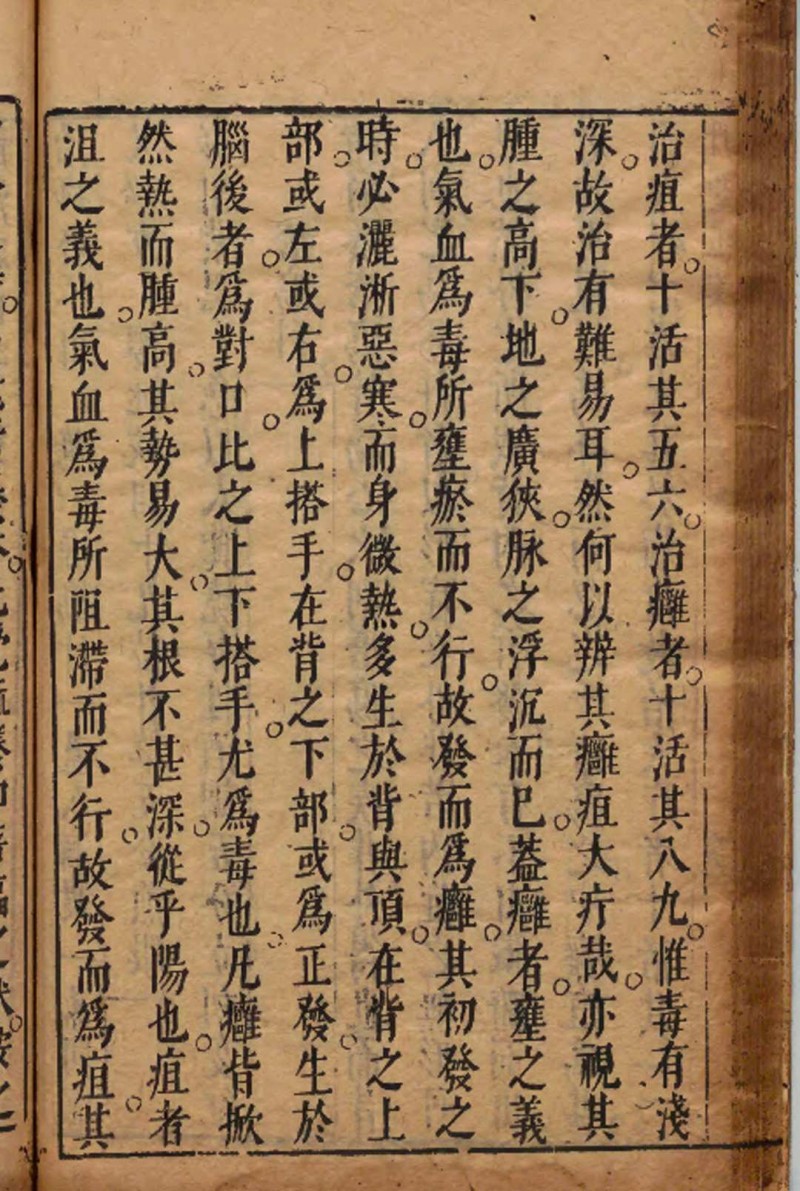 治疽者十活其五六治癰者十活其八九惟毒有淺
深故治有難易耳然何以辨其癰疽大疔哉亦視其
腫之高下地之廣狹脉之浮沉而已蓋癰者壅之義
也氣血爲毒所壅瘀而不行故發而爲癰其初發之
時必灑淅惡寒而身微熱多生於背與頂在背之上
部或左或右爲上搭手在背之下部或爲正發生於
腦後者爲對口比之上下搭手尤爲毒也凡癰皆掀
然熱而腫高其勢易大其根不甚深從乎陽也疽者
沮之義也氣血爲毒所阻滯而不行故發而爲疽其